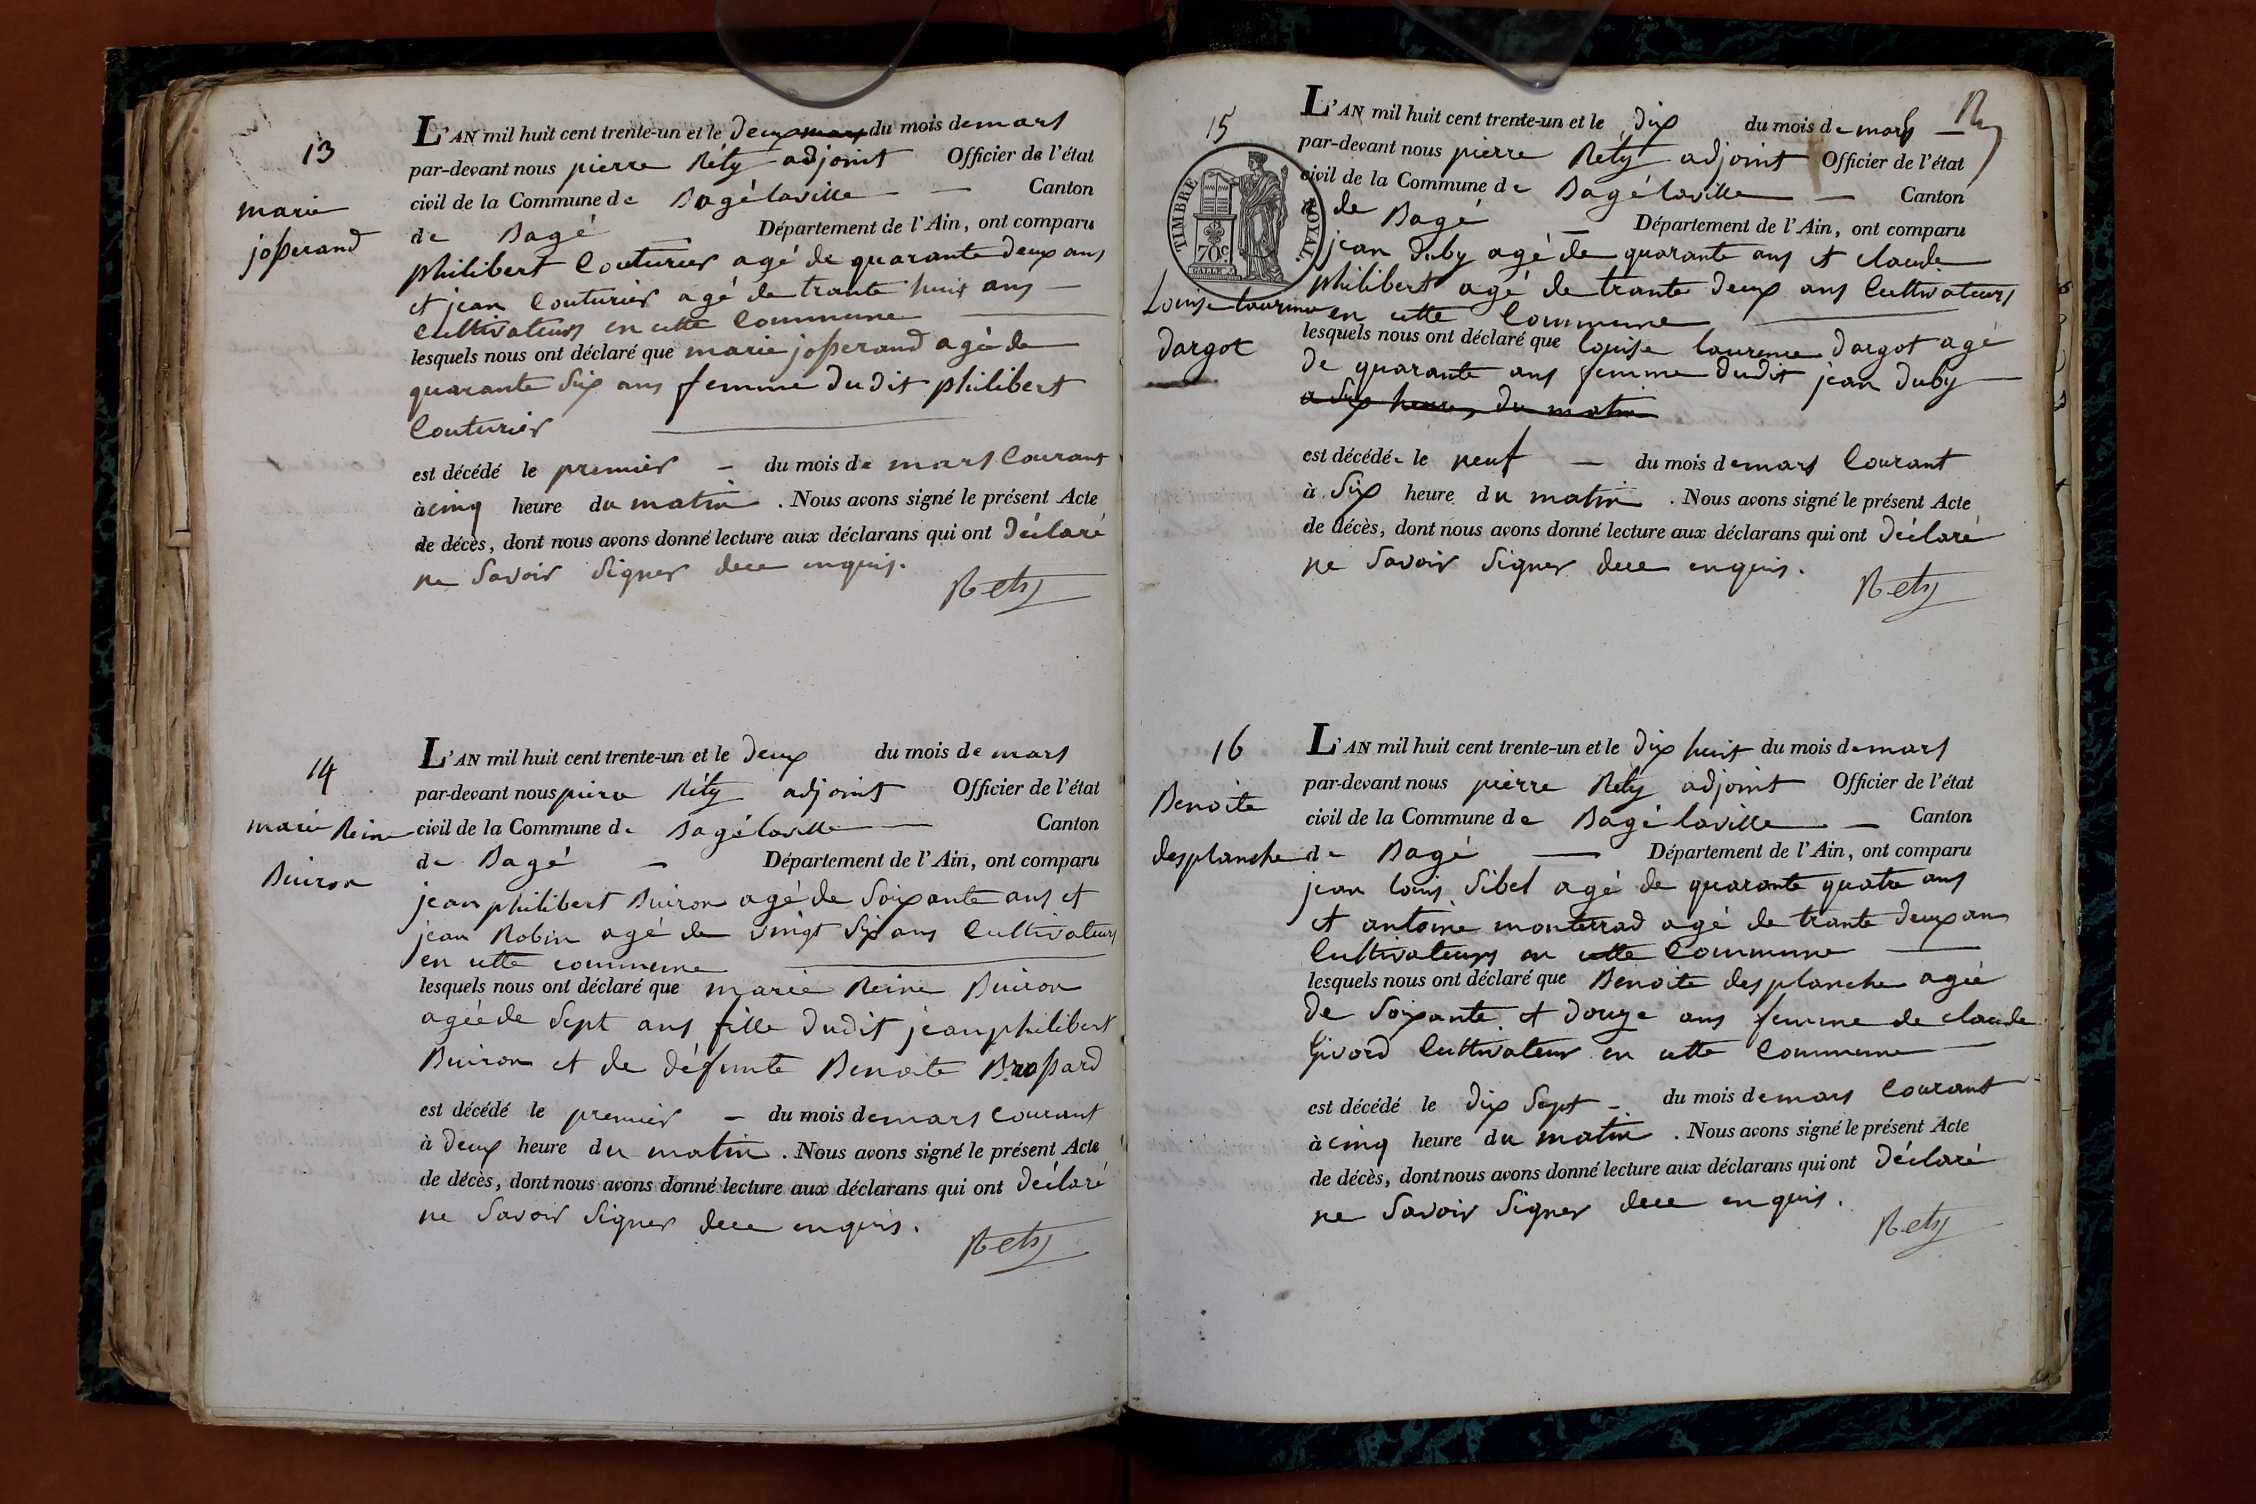 13
marie
josserand
L'AN mil huit cent trente-un et le deux mars du mois de mars
par-devant nous pierre Réty adjoint Officier de l'état
civil de la Commune de Bagélaville — — Canton
de Bagé — Département de l'Ain, ont comparu
philibert Couturier agé de quarante deux ans
et jean Couturier agé de trante huit ans —
Cultivateurs en cette Commune —
lesquels nous ont déclaré que marie josserand agée de
quarante six ans femme dudit philibert
Couturier —
est décédé le premier — du mois de mars Courant
à cinq heure du matin . Nous avons signé le présent Acte
de décès, dont nous avons donné lecture aux déclarans qui ont déclaré
ne Savoir Signer dece enquis.
Rety
14
marie Reine
Buiron
L'AN mil huit cent trente-un et le deux du mois de mars
par-devant nous pierre Réty adjoint Officier de l'état
civil de la Commune de Bagélaville — Canton
de Bagé — Département de l'Ain, ont comparu
jean philibert Buiron agé de Soixante ans et
jean Robin agé de vingt Six ans Cultivateurs
en cette commune —
lesquels nous ont déclaré que marie Reine Buiron
agée de Sept ans fille dudit jean philibert
Buiron et de défunte Benoite Brossard
est décédé le premier — du mois de mars Courant
à deux heure du matin . Nous avons signé le présent Acte
de décès, dont nous avons donné lecture aux déclarans qui ont déclaré
ne Savoir Signer dece enquis.
Rety
15
TIMBRE ROYAL
70c
Louise Laurence
dargot
L'AN mil huit cent trente-un et le dix du mois de mars —
par-devant nous pierre Réty adjoint Officier de l'état
civil de la Commune de Bagélaville — Canton
de Bagé — Département de l'Ain, ont comparu
jean duby agé de quarante ans et claude
philibert agé de trante deux ans Cultivateurs
en cette Commune —
lesquels nous ont déclaré que louise laurence dargot agé
de quarante ans femme dudit jean duby —
a Six heures du matin
est décédée le neuf — du mois de mars Courant
à Six heure du matin . Nous avons signé le présent Acte
de décès, dont nous avons donné lecture aux déclarans qui ont déclaré
ne Savoir Signer dece enquis.
Rety
16
Benoite
desplanche
L'AN mil huit cent trente-un et le dix huit du mois de mars
par-devant nous pierre Réty adjoint Officier de l'état
civil de la Commune de Bagélaville — Canton
de Bagé — Département de l'Ain, ont comparu
jean louis Sibel agé de quarante quatre ans
et antoine monterrad agé de trante deux ans
Cultivateurs en cette Commune —
lesquels nous ont déclaré que Benoite desplanche agée
de Soixante et douze ans femme de claude
Givord Cultivateur en cette Commune —
est décédé le dix Sept — du mois de mars Courant
à cinq heure du matin . Nous avons signé le présent Acte
de décès, dont nous avons donné lecture aux déclarans qui ont déclaré
ne Savoir Signer dece enquis.
Rety